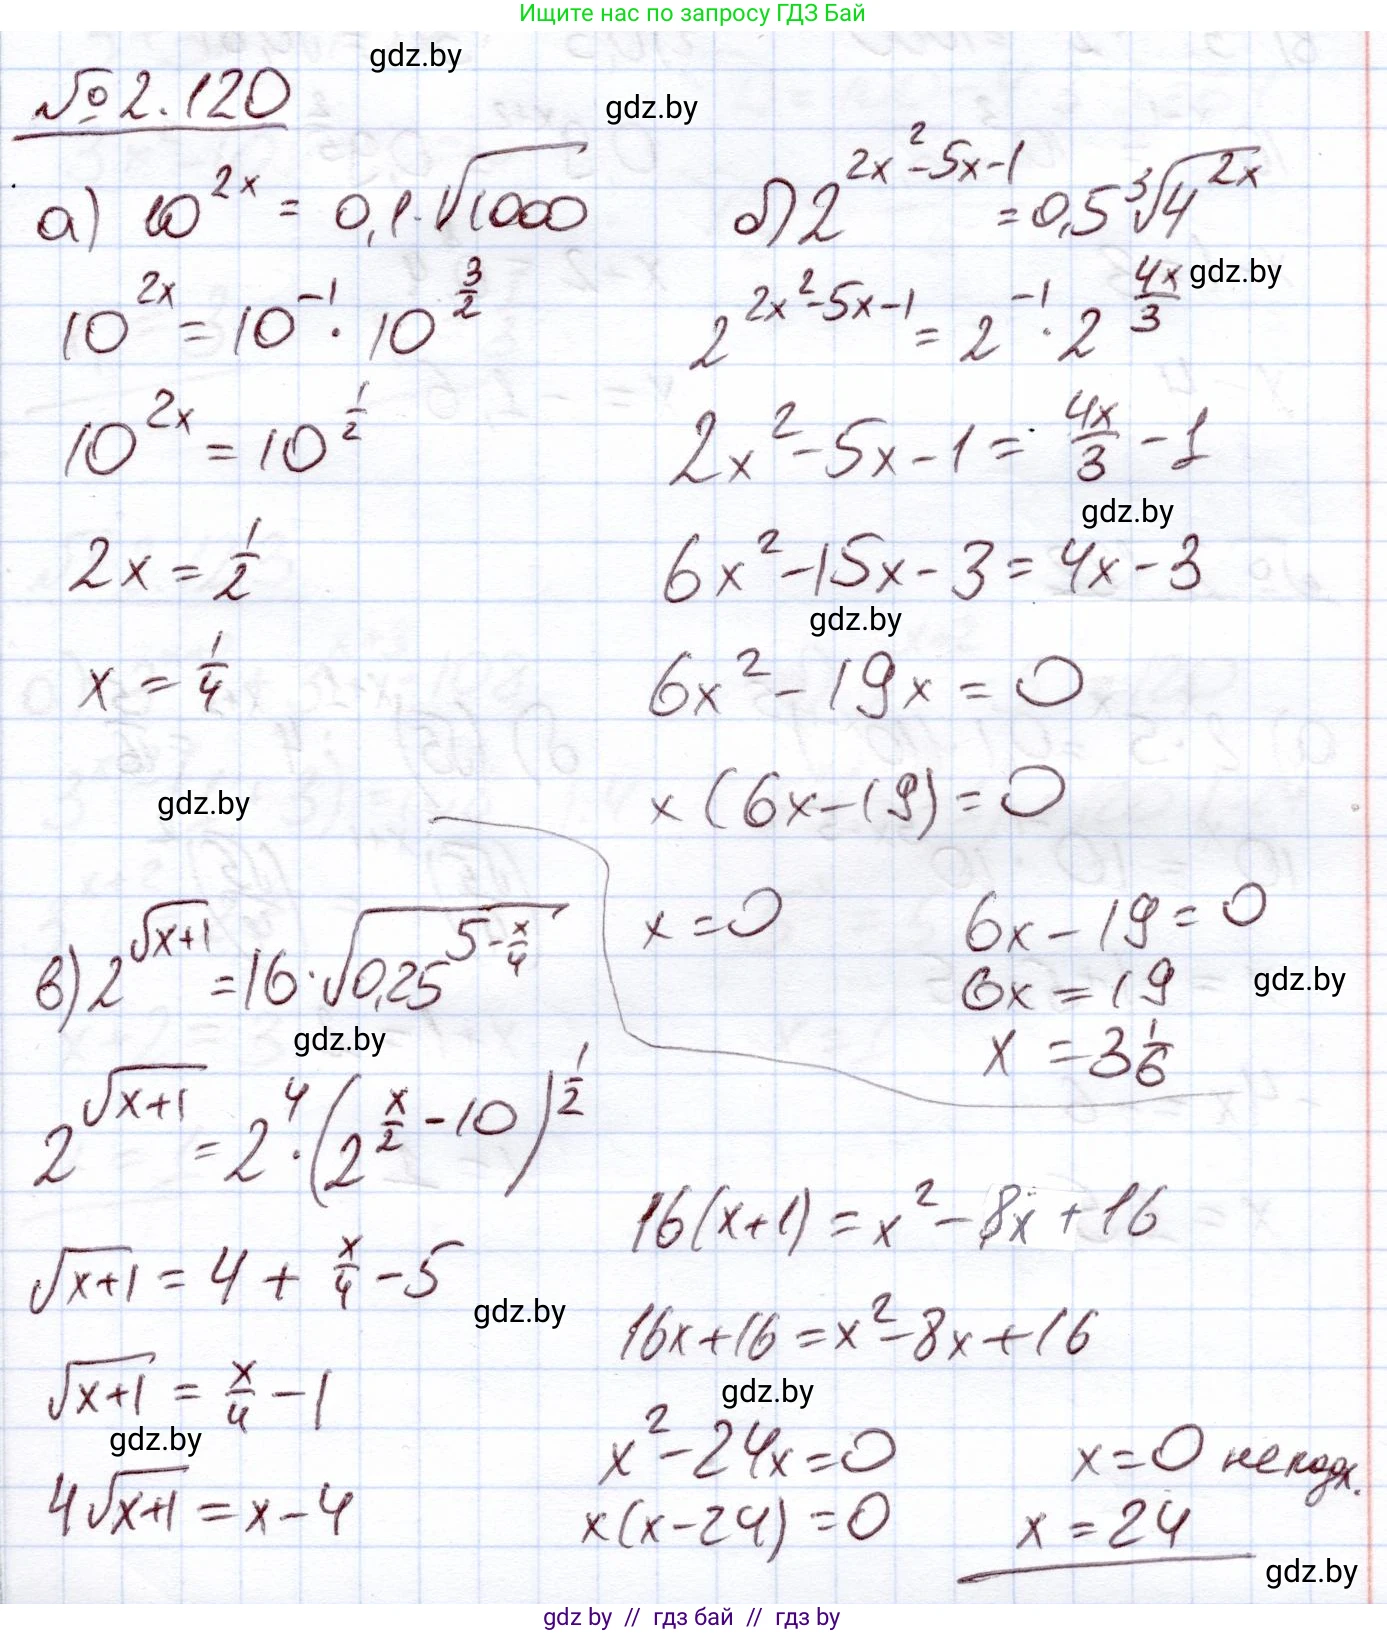 Ищите нас по запросу ГДЗ Бай
gdz.by
№ 2.120
gdz.by
а) 10^(2x) = 0,1·√1000
10^(2x) = 10^(-1) · 10^(3/2)
10^(2x) = 10^(1/2)
2x = 1/2
x = 1/4
gdz.by
б) 2^(2x²-5x-1) = 0,5 ∛4^(2x)
gdz.by
2^(2x²-5x-1) = 2^(-1) · 2^(4x/3)
2x² - 5x - 1 = 4x/3 - 1
gdz.by
6x² - 15x - 3 = 4x - 3
gdz.by
6x² - 19x = 0
x(6x-19) = 0
x = 0
6x - 19 = 0
6x = 19
gdz.by
x = 3 1/6
в) 2^(√(x+1)) = 16·√(0,25^(5-x/4))
gdz.by
2^(√(x+1)) = 2^4 · (2^(x/2 - 10))^(1/2)
√(x+1) = 4 + x/4 - 5
gdz.by
√(x+1) = x/4 - 1
gdz.by
4√(x+1) = x - 4
16(x+1) = x² - 8x + 16
16x + 16 = x² - 8x + 16
gdz.by
x² - 24x = 0
x(x-24) = 0
x = 0 не подх.
x = 24
gdz.by
gdz by // гдз бай // гдз by